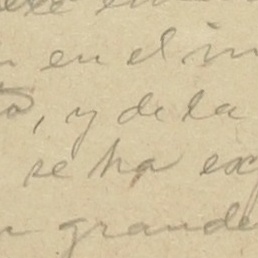 en el in
, y de la
se ha ex
grande